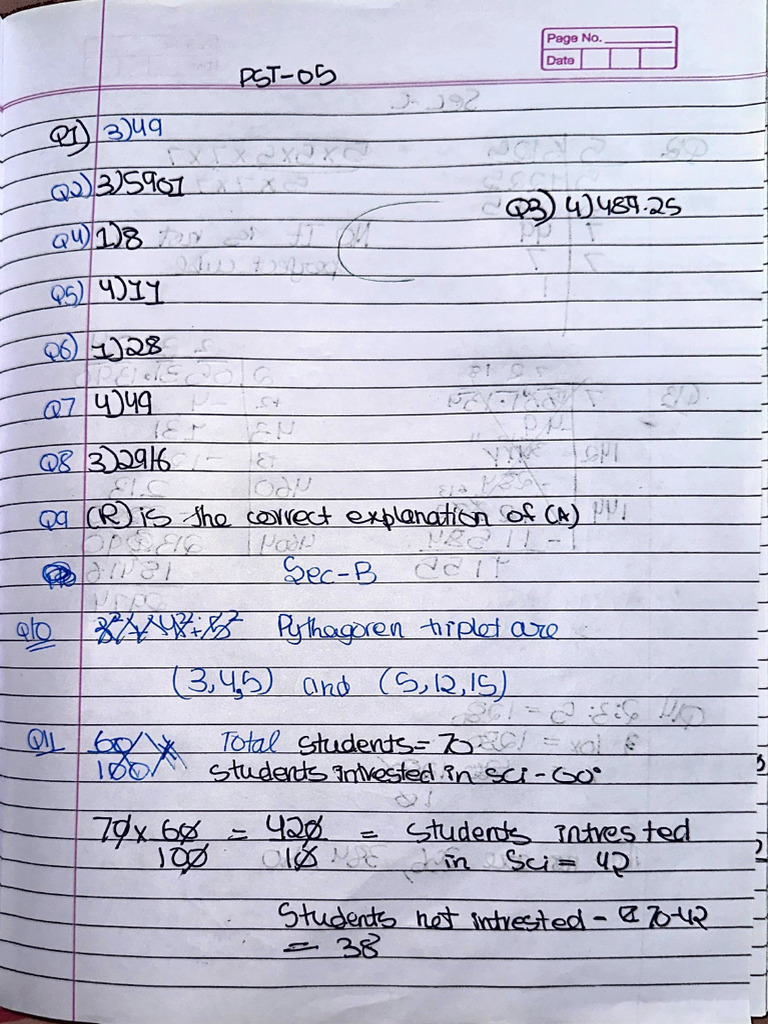 Page No.
Date
PST-05
Q1) 3)49
Q2) 3)5901
Q3) 4)489.25
Q4) 1)8
Q5) 4)11
Q6) 1)28
Q7 4)49
Q8 3)2916
Q9 (R) is the correct explanation of (A)
Sec-B
Q10 Pythagoren triplet are
(3,4,5) and (5,12,15)
Q11 60/100 Total students = 70
students intrested in sci - 60%
70 x 60/100 = 420/10 = students intrested
in Sci = 42
Students not intrested - 70-42
= 38